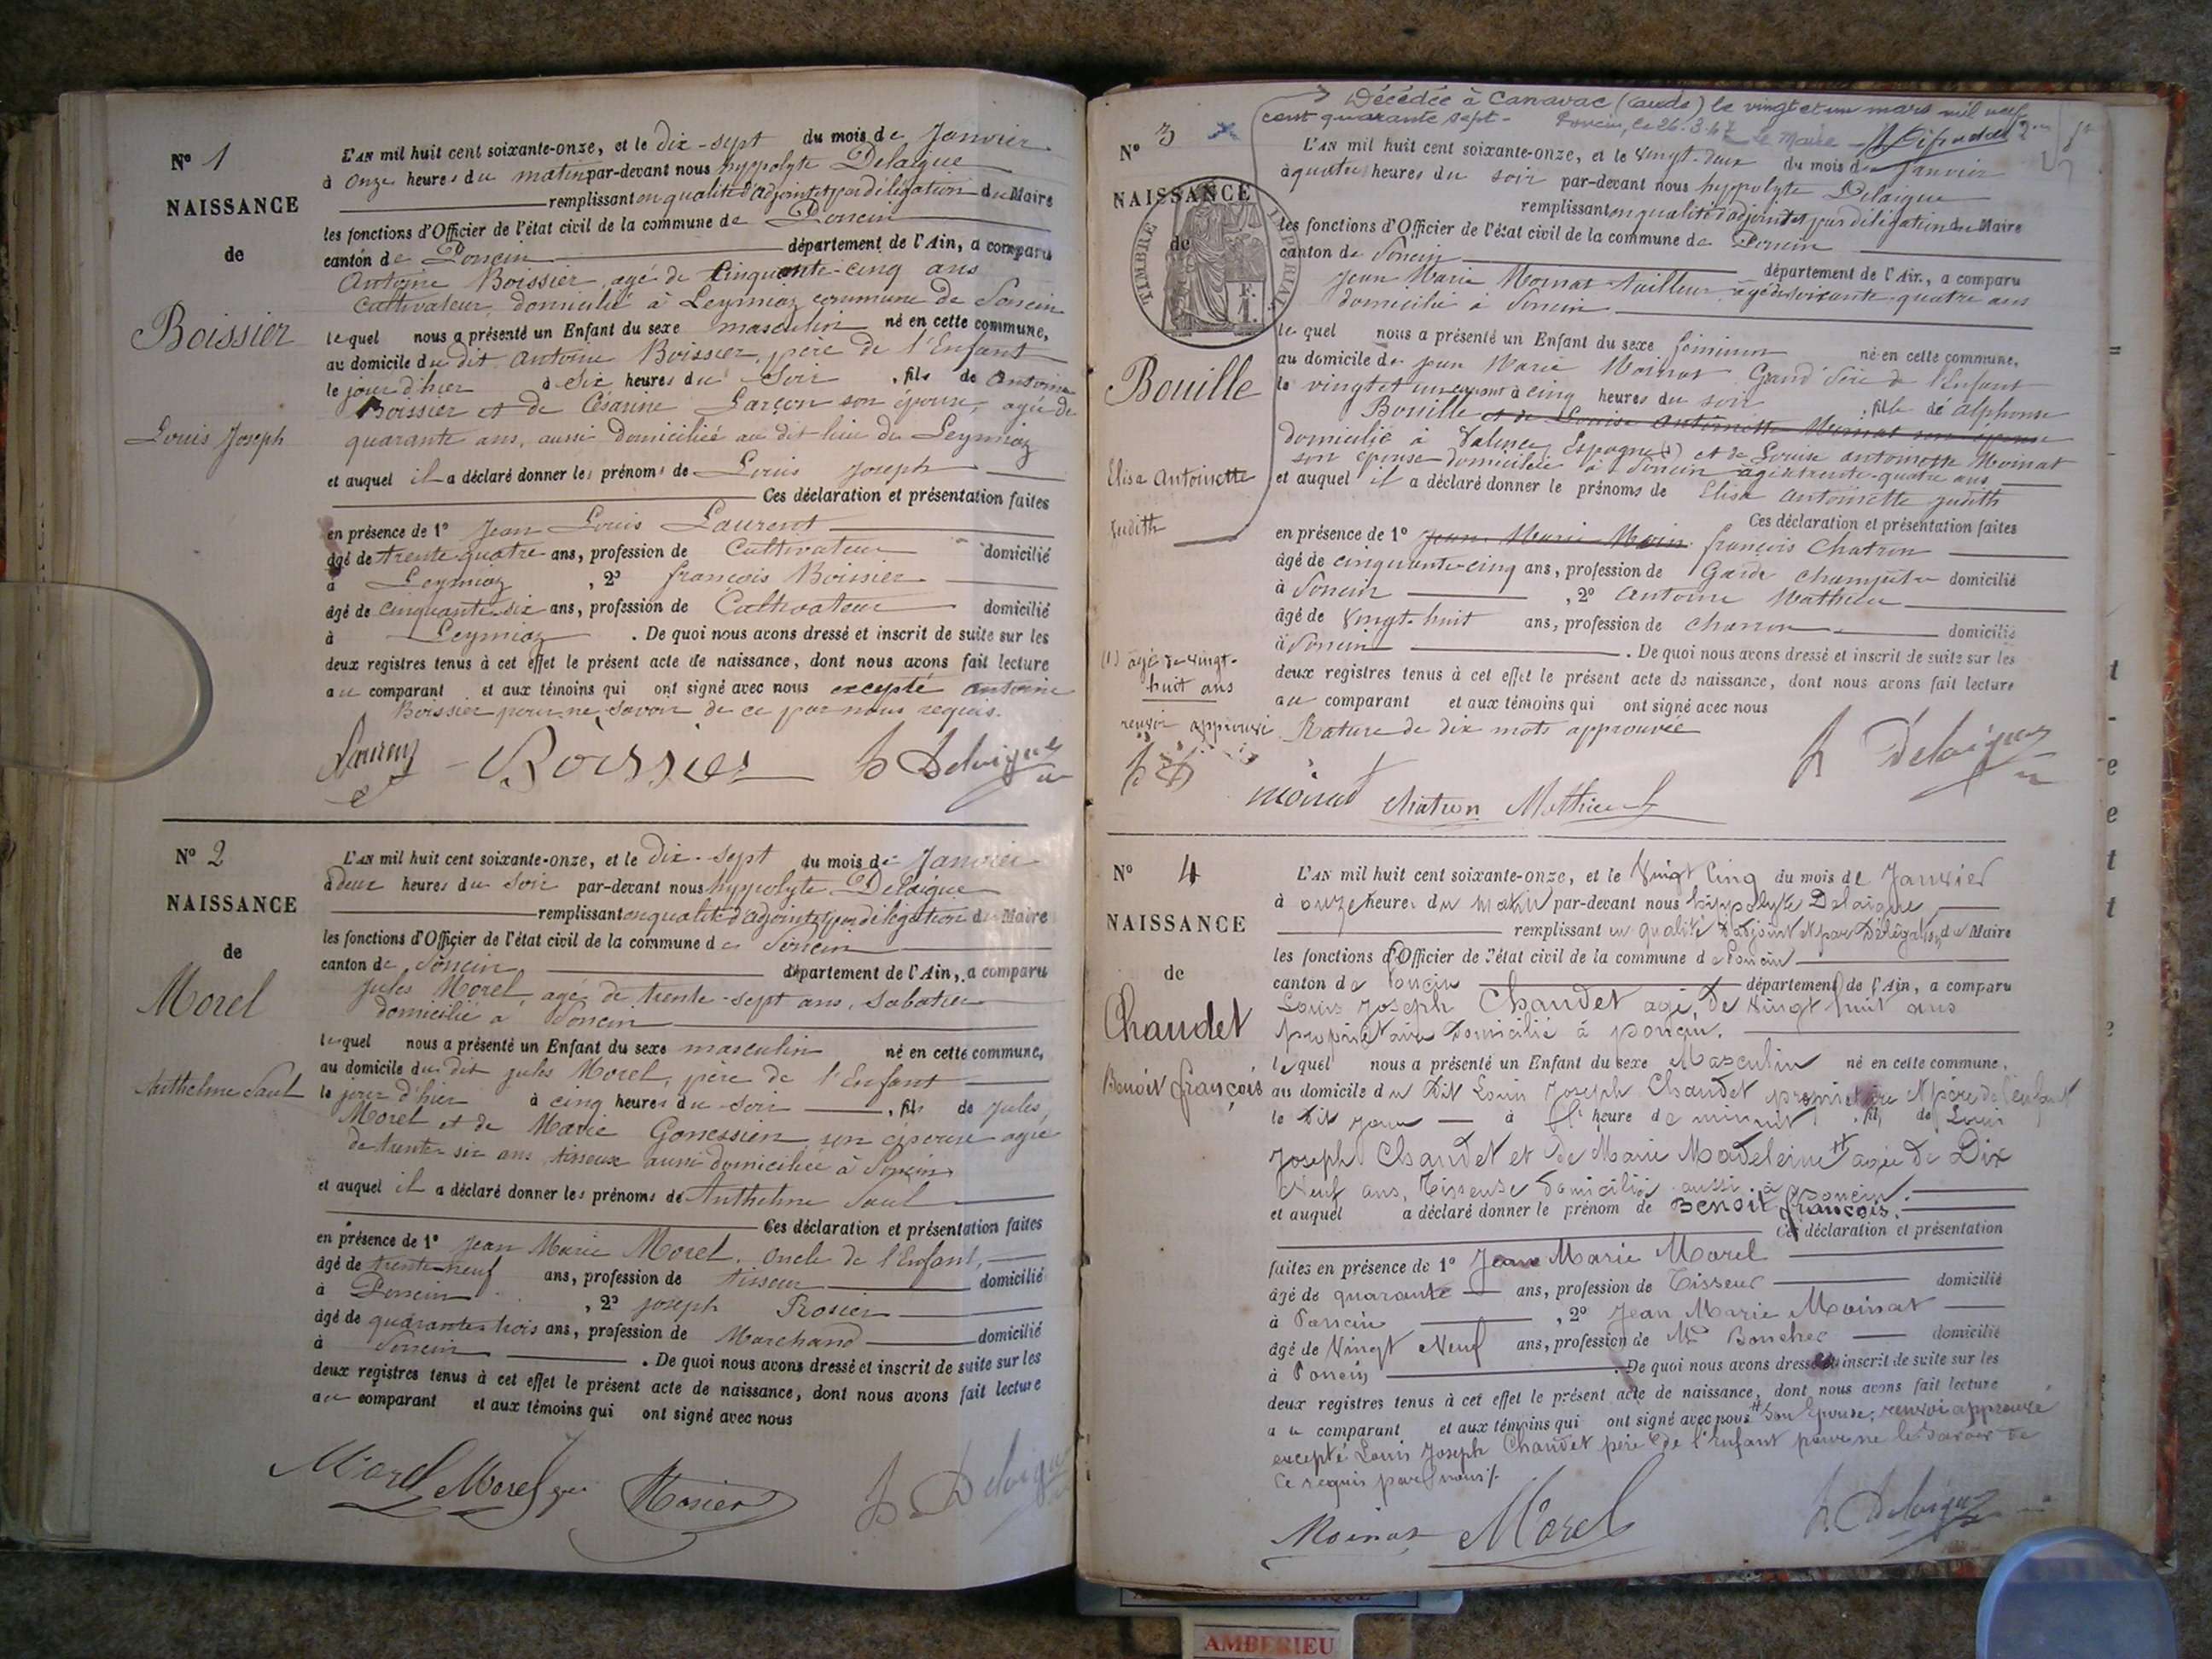 N° 1
NAISSANCE
de
Boissier
Louis Joseph
L'AN mil huit cent soixante-onze, et le dix-sept du mois de Janvier
à onze heures du matin par-devant nous hyppolyte Delaigue
remplissant en qualité d'adjoint et par délégation du Maire
les fonctions d'Officier de l'état civil de la commune de Poncin
canton de Poncin département de l'Ain, a comparu
Antoine Boissier, agé de Cinquante-cinq ans
Cultivateur, domicilié à Leymiaz commune de Poncin
lequel nous a présenté un Enfant du sexe masculin né en cette commune,
au domicile du dit Antoine Boissier, père de l'Enfant
le jour d'hier à six heures du soir, fils de Antoine
Boissier et de Césarine Garçon son épouse, agée de
quarante ans, aussi domiciliée au dit lieu de Leymiaz
et auquel il a déclaré donner les prénoms de Louis Joseph
Ces déclaration et présentation faites
en présence de 1° Jean Louis Laurent
âgé de trente-quatre ans, profession de Cultivateur domicilié
à Leymiaz, 2° françois Boissier
âgé de cinquante-six ans, profession de Cultivateur domicilié
à Leymiaz. De quoi nous avons dressé et inscrit de suite sur les
deux registres tenus à cet effet le présent acte de naissance, dont nous avons fait lecture
au comparant et aux témoins qui ont signé avec nous excepté antoine
Boissier pour ne savoir de ce par nous requis.
Laurent Boissier h Delaigue
N° 2
NAISSANCE
de
Morel
Anthelme Paul
L'AN mil huit cent soixante-onze, et le dix-sept du mois de Janvier
à deux heures du soir par-devant nous hyppolyte Delaigue
remplissant en qualité d'adjoint et par délégation du Maire
les fonctions d'Officier de l'état civil de la commune de Poncin
canton de Poncin département de l'Ain, a comparu
Jules Morel, agé de trente-sept ans, sabotier
domicilié à Poncin
lequel nous a présenté un Enfant du sexe masculin né en cette commune,
au domicile du dit jules Morel, père de l'Enfant
le jour d'hier à cinq heures du soir, fils de Jules,
Morel et de Marie Gonessien son épouse agée
de trente-six ans, tisseuse aussi domiciliée à Poncin
et auquel il a déclaré donner les prénoms de Anthelme Paul
Ces déclaration et présentation faites
en présence de 1° Jean Marie Morel, oncle de l'Enfant,
âgé de trente-neuf ans, profession de tisseur domicilié
à Poncin, 2° joseph Rosier
âgé de quarante-trois ans, profession de Marchand domicilié
à Poncin. De quoi nous avons dressé et inscrit de suite sur les
deux registres tenus à cet effet le présent acte de naissance, dont nous avons fait lecture
au comparant et aux témoins qui ont signé avec nous
Morel Morel Rosier h Delaigue
Décédée à Canavac (aude) le vingt et un mars mil neuf
cent quarante sept - Poncin, le 26.3.47 Le Maire
N° 3
NAISSANCE
de
TIMBRE IMPERIAL
Bouille
Elisa Antoinette
Judith
(1) agé de vingt-
huit ans
renvoi approuvé
L'AN mil huit cent soixante-onze, et le vingt-deux du mois de Janvier
à quatre heures du soir par-devant nous hyppolyte Delaigue
remplissant en qualité d'adjoint et par délégation du Maire
les fonctions d'Officier de l'état civil de la commune de Poncin
canton de Poncin département de l'Ain, a comparu
Jean Marie Moinat tailleur agé de soixante-quatre ans
domicilié à Poncin
lequel nous a présenté un Enfant du sexe féminin né en cette commune,
au domicile de jean Marie Moinat Grand Père de l'Enfant
le vingt et un courant à cinq heures du soir, fille de alphonse
Bouille et de Louise Antoinette Moinat son épouse
domicilié à Valence Espagne (1) et de Louise antoinette Moinat
son épouse domiciliée à Poncin agée de trente-quatre ans
et auquel il a déclaré donner le prénoms de Elisa Antoinette judith
Ces déclaration et présentation faites
en présence de 1° Jean Marie Moin françois Chatron
âgé de cinquante-cinq ans, profession de Garde champêtre domicilié
à Poncin, 2° Antoine Mathieu
âgé de Vingt-huit ans, profession de charron domicilié
à Poncin. De quoi nous avons dressé et inscrit de suite sur les
deux registres tenus à cet effet le présent acte de naissance, dont nous avons fait lecture
au comparant et aux témoins qui ont signé avec nous
Rature de dix mots approuvée
h Delaigue
moinat chatron Mathieu
N° 4
NAISSANCE
de
Chaudet
Benoit françois
L'AN mil huit cent soixante-onze, et le Vingt Cinq du mois de Janvier
à onze heures du matin par-devant nous hippolyte Delaigue,
remplissant en qualité d'adjoint et par Délégation du Maire
les fonctions d'Officier de l'état civil de la commune de Poncin
canton de Poncin département de l'Ain, a comparu
Louis Joseph Chaudet agé, de vingt huit ans
propriétaire Domicilié à poncin.
lequel nous a présenté un Enfant du sexe Masculin né en cette commune,
au domicile du Dit Louis Joseph Chaudet propriétaire et père de l'enfant
le Dit jour à l' heure de minuit, fils de Louis
Joseph Chaudet et de Marie Madeleine # agée de Dix
Neuf ans, Tisseuse domiciliée aussi à poncin.
et auquel a déclaré donner le prénom de Benoit françois.
Ces déclaration et présentation
faites en présence de 1° Jean Marie Morel
âgé de quarante ans, profession de Tisseur domicilié
à Poncin, 2° Jean Marie Moinat
âgé de Vingt Neuf ans, profession de Md Boucher domicilié
à Poncin. De quoi nous avons dressé et inscrit de suite sur les
deux registres tenus à cet effet le présent acte de naissance, dont nous avons fait lecture
au comparant et aux témoins qui ont signé avec nous # Son Epouse; renvoi approuvé
excepté Louis Joseph Chaudet père de l'enfant pour ne le savoir de
Ce requis par nous /.
Moinat Morel h. Delaigue
AMBERIEU